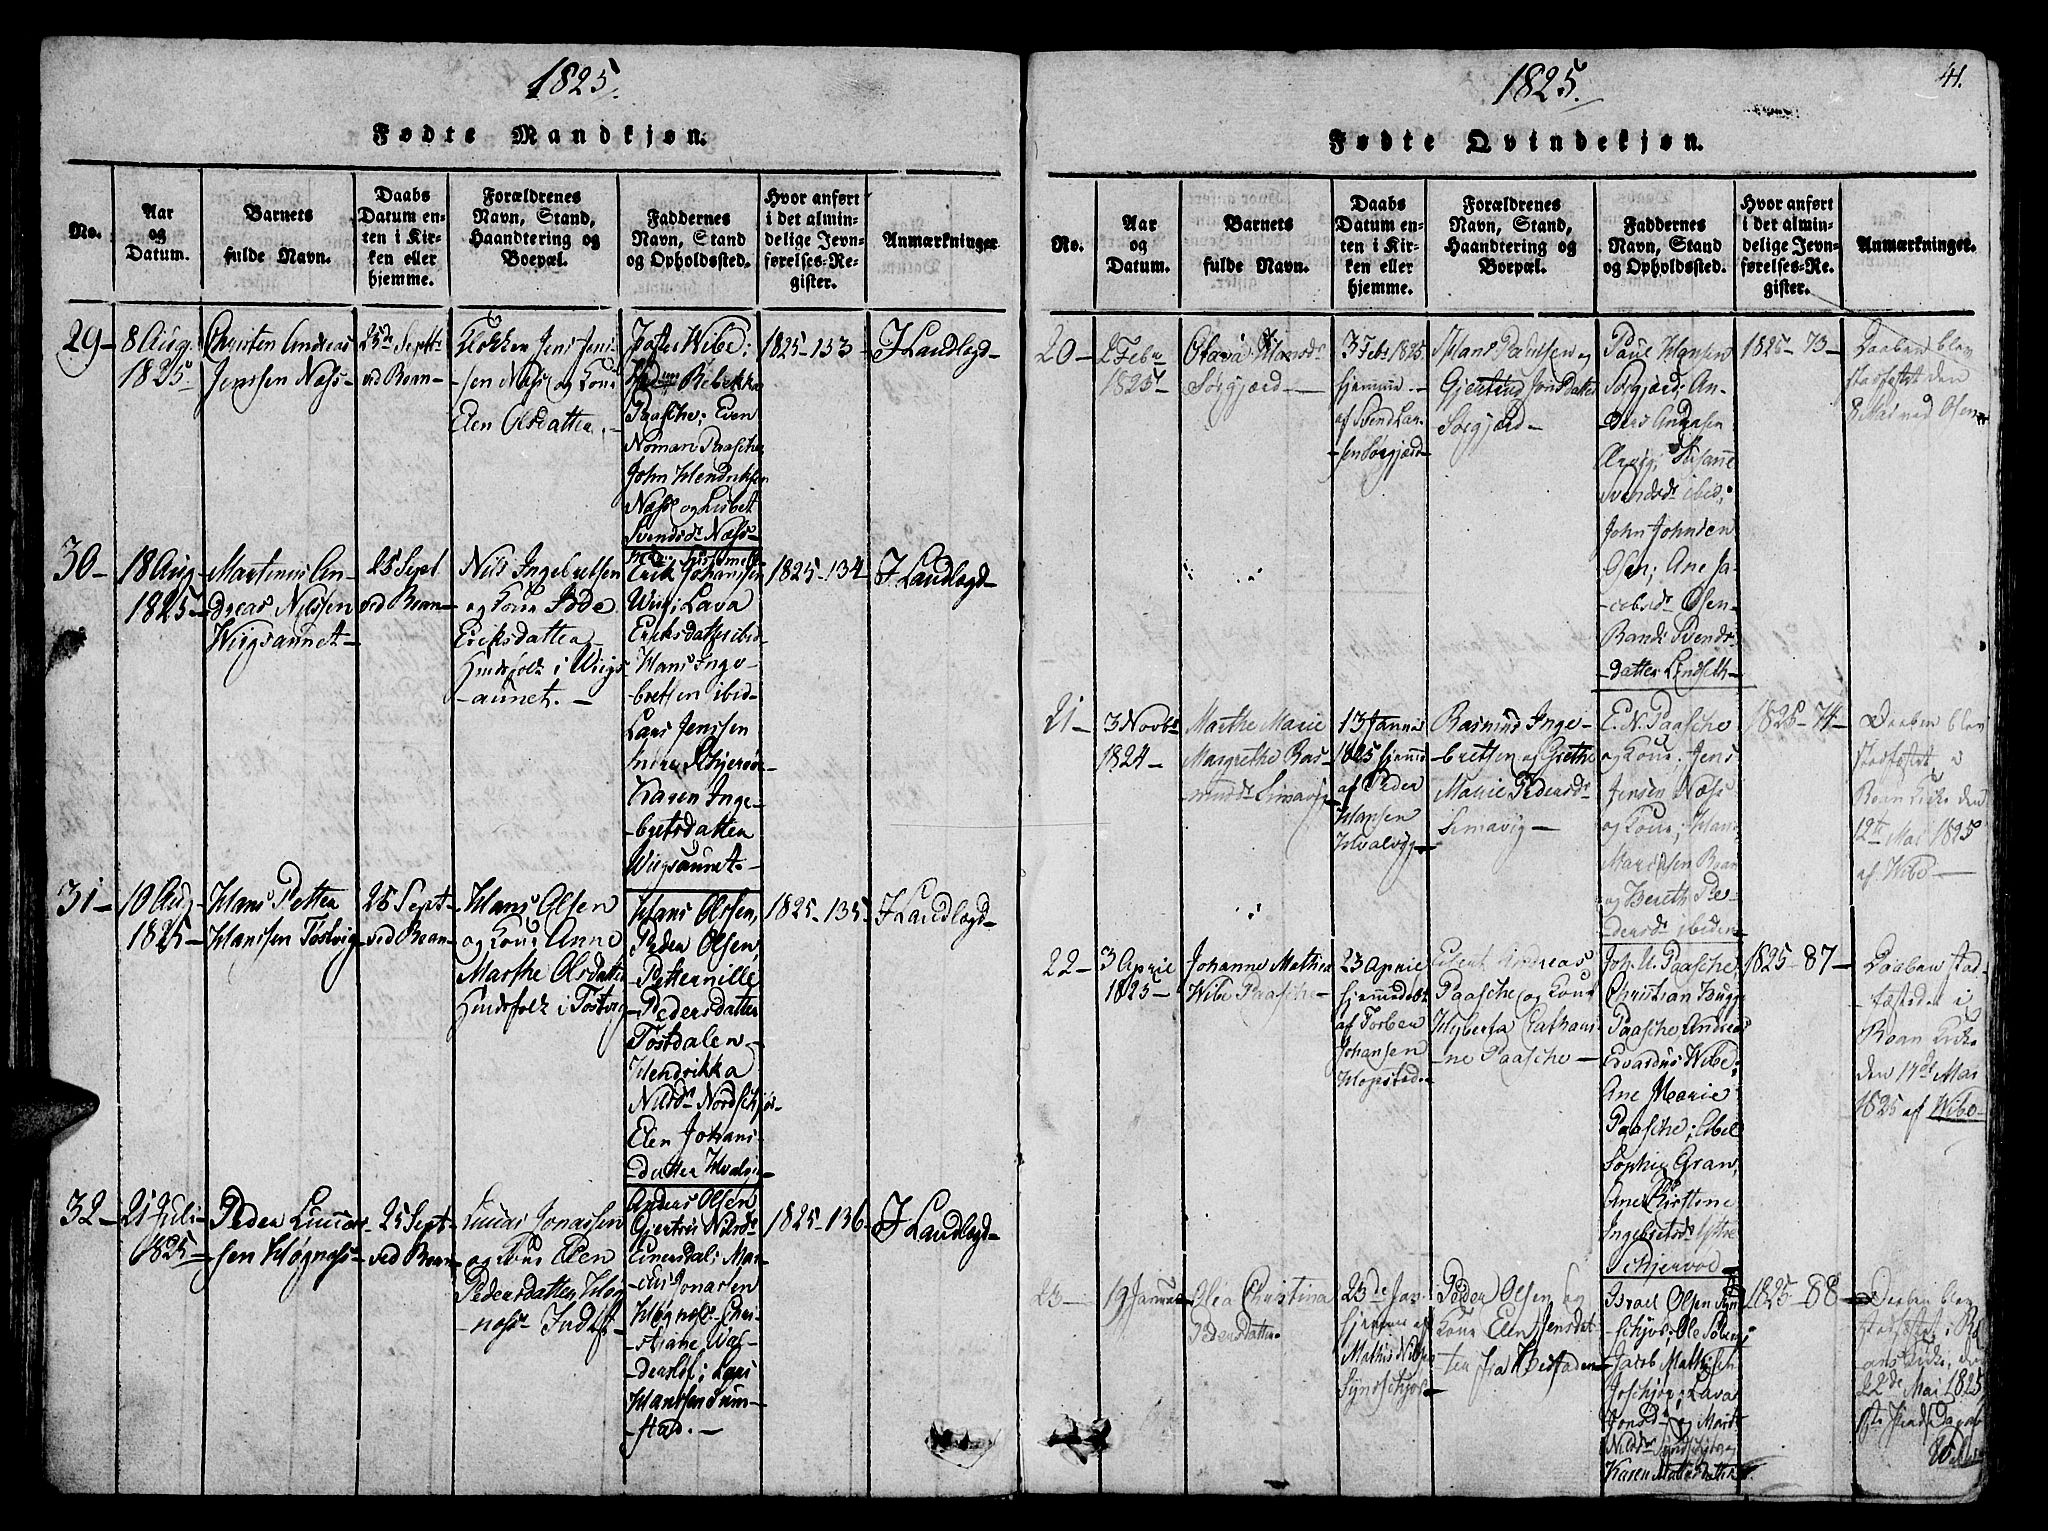 1825.
Fødte Mandkjøn.
No.
Aar
og
Datum.
Barnets
fulde Navn.
Daabs
Datum en-
ten i Kir-
ken eller
hjemme.
Forældrenes
Navn, Stand,
Haandtering og
Boepæl.
Faddernes
Navn, Stand
og Opholdssted.
Hvor anført
i det almin-
delige Jevn-
førelses-Re-
gister.
Anmærkninger
29-
8 Aug.
1825
Christen Andreas
Jenssen Næss-
25de Septbr
ved Roan-
Klokker Jens Jen-
-sen Næss og Kone
Elen Olsdatter.-
Wibe;
Rebekka
Paasche; Even
Norman Paasche
John Hendriksen
Næss og Lisbet
Svendsdr Næss-
1825-133-
I Landlægd-
30-
18 Aug
1825-
Martinus An-
dreas Nilssen
Wiigsaunet-
25 Sept
ved Roan-
Nils Ingebretsen
og Kone
Eriksdatter
Huusfolk i Wiigs-
-aunet.-
Erik Johanssen
Lava
Eriksdatter ibid
Hans Inge-
-bretsen ibid-
Lars Jenssen
Karen Inge-
-bretsdatter
Wiigsaunet.-
1825-134-
I Landlægd-
31-
10 Aug
1825-
Hans Petter
Hanssen Tostvig-
25 Sept-
ved Roan-
Hans Olsen
og Kone Anne
Marthe Olsdatter
Huusfolk i Tostvig
Hans Olssen,
Peder Olsen,
-Petternille
-Pedersdatter
Tostdalen-
Hendrikka
Nilsdr Nordskjør-
Elen Johans-
-datter Hvalvig-
1825-135-
I Landlægd-
32-
21 Juli-
1825-
Peder Linias-
sen Høgnæss-
25 Sept-
ved Roan-
Jonassen
og Kone Elen
Pedersdatter Høg-
-næss Inderst-
Anders Olsen
Gjertru Nilsdr
Einersdal; Mar-
-cus Jonassen
Høgnæss Chri-
-stiane Wal-
Hanssen Sum-
-stad.-
1825-136-
I Landlægd-
1825.
41.
Fødte Qvindekjøn.
No.
Aar
og
Datum.
Barnets
fulde Navn.
Daabs
Datum en-
ten i Kir-
ken eller
hjemme.
Forældrenes
Navn, Stand,
Haandtering og
Boepæl.
Faddernes
Navn, Stand
og Opholdssted.
Hvor anført
i det almin-
delige Jevn-
førelses-Re-
gister.
Anmærkninger.
20-
2 Febr
1825
Olava Hansdr
Sørgjærd-
3 Febr 1825
hjemme-
af Svend Lar-
-sen Sørgjærd-
Hans Paulsen og
Gjertrud Jonsdatter
Sørgjærd-
Paul Hansen
Sørgjærd; An-
-ders Andersen
Susanne
Svendsdr ibid;
John Johnsen
Osen; Ane Ja-
-cobsdr Osen-
Randi Svends-
datter Lindseth-
1825-73-
Daaben blev
stadfæstet den
8 Mai ved Osen
21-
3 Novbr
1824-
Marthe Marie
Margrethe Ras-
-musdr Simavig
13 Januar
1825 hjemme
af Peder
Hansen
Hvalvig-
Rasmus Inge-
bretsen og Grethe
Marie Pedersdr
Simavig-
E. N. Paasche
og Kone, Jens
Jensen Næss
og Kone; Hans
Roan
og Bereth Pe-
-dersdr ibidem-
1825-74-
Daaben blev
stadfæstet i
Roan Kirke den
12te Mai 1825
af Wibe-
22-
3 April
1825-
Johanne Mathea
Wibe Paasche-
23 April
hjemmedøbt
af Torben
Johansen
Hopstad-
Eilert Andreas
Paasche og Kone
Hyberta Cathari-
-ne Paasche-
Joh. N. Paasche;
Christian Bugge
Paasche, Andreas
Edvardus Wibe;
Ane Marie
Paasche; Sibel
Sophie Gran;
Ane Kirstine
Ingebretsdr
1825-87-
Daaben stad-
-fæstedes i
Roan Kirke
den 17de Mai
1825 af Wibe-
23-
19 Januar
Olea Christina
Pedersdatter
23de Jan.
hjemme af
Mathis Nilsen
Syndschjør-
Peder Olsen og
Kone Elen Jensdat-
ter fra Bestaden-
Israel Olsen Syn-
-schjør; Ole
Jacob Mathisen
Lava
Jonsdr og Marit
Nilsdr
Karen
1825-88-
Daaben blev
stadfæstet i Ro-
ans Kirke, den
22de Mai 1825